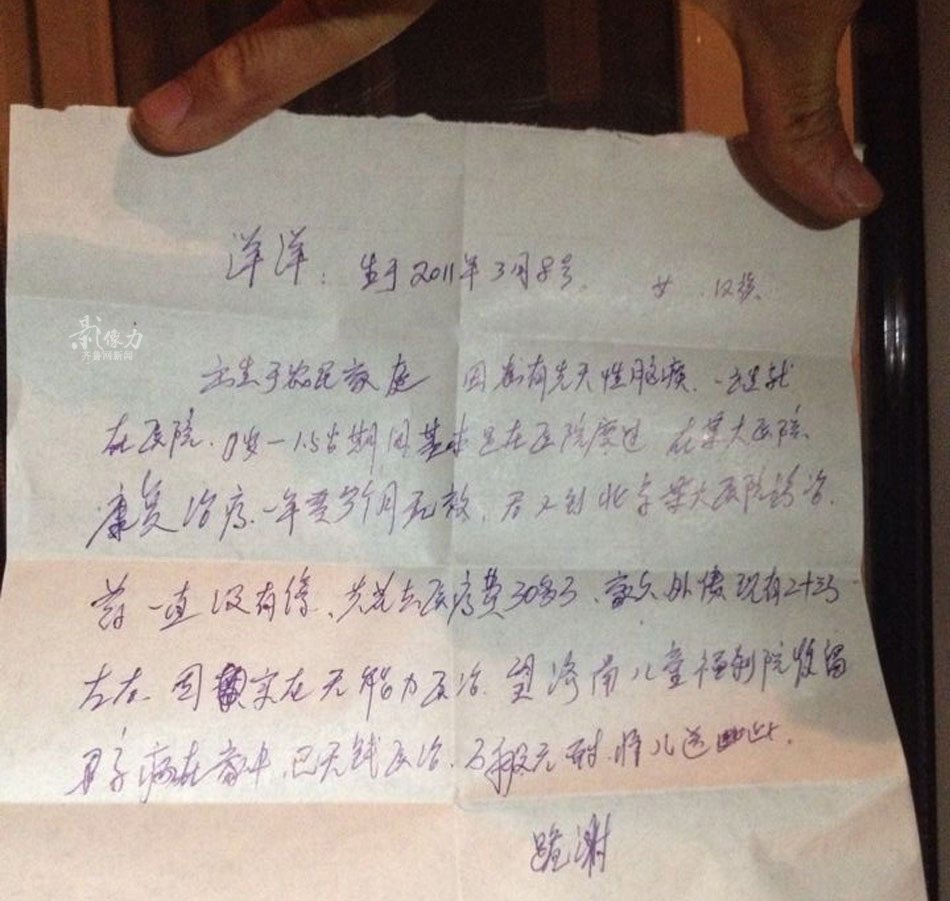 洋洋: 生于2011年3月8号. 女.汉族.
影像力
齐鲁网新闻
出生于农民家庭 因患有先天性脑疾.一出生就
在医院.0岁-1.5岁期间基本是在医院度过 在某大医院
康复治疗.一年零多个月无效.后又到北京某大医院诊治.
药一直没有停.共花去医疗费30多万.家欠外债现有2十3万
左右.因实在无能力医治.望济南儿童福利院收留
孩子病在家中.已无钱医治.万般无耐.将儿送此.
跪谢